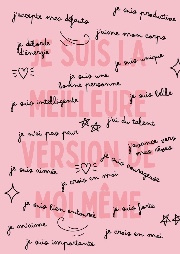 j'accepte mes défauts
je suis productive
j'aime mon corps
je déborde
d'énergie
JE SUIS LA
je suis unique
je suis une
bonne personne
je suis belle
MEILLEURE
je suis intelligente
j'ai du talent
je n'ai pas peur
j'avance vers
mes rêves
VERSION DE
je suis courageuse
je suis aimée
je crois en moi
MOI-MÊME
je suis bien entourée
je suis forte
je m'aime
je crois en moi
je suis importante